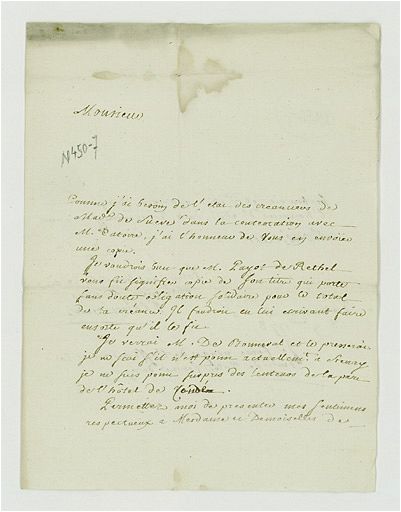 Monsieur
N450-7
Comme j'ai besoin de l'etat des creanciers de
Mad. de dans la contestation avec
M. j'ai l'honneur de vous en envoier
une copie.
Je voudrois que M. Payot de Rethel
vous fit signifier copie de son titre qui porte
sans doute obligation solidaire pour le total
de sa créance. Il faudroit en lui ecrivant faire
ensorte qu'il le fit.
Je verrai M. De Bonneval et le presserai
je ne sçai s'il n'est point actuellemt. a
je ne suis point surpris des de la part
de l'hôtel de
Permettez moi de presenter mes sentimens
respectueux a Mesdame et Demoiselles de